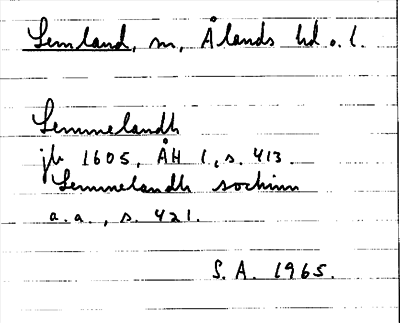 Lemland, sn, Ålands hd o. l.
Lemmelandh
jb 1605, ÅH 1, s. 413.
Lemmelandh sochnn
a.a., s. 421.
S.A. 1965.